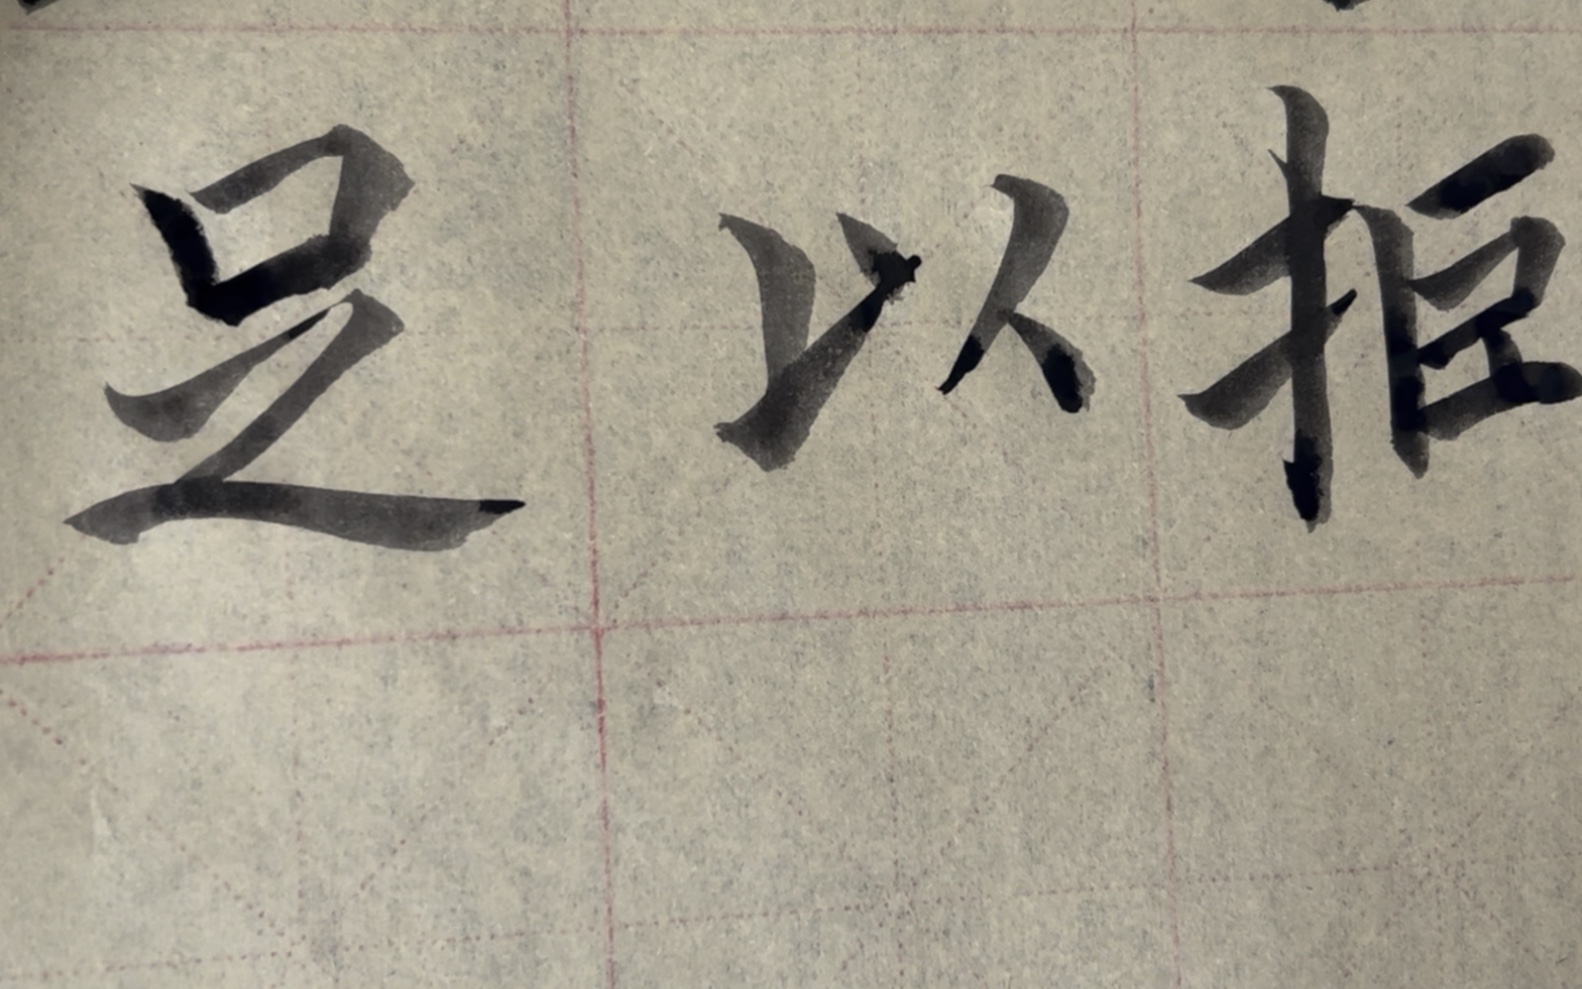 足以拒